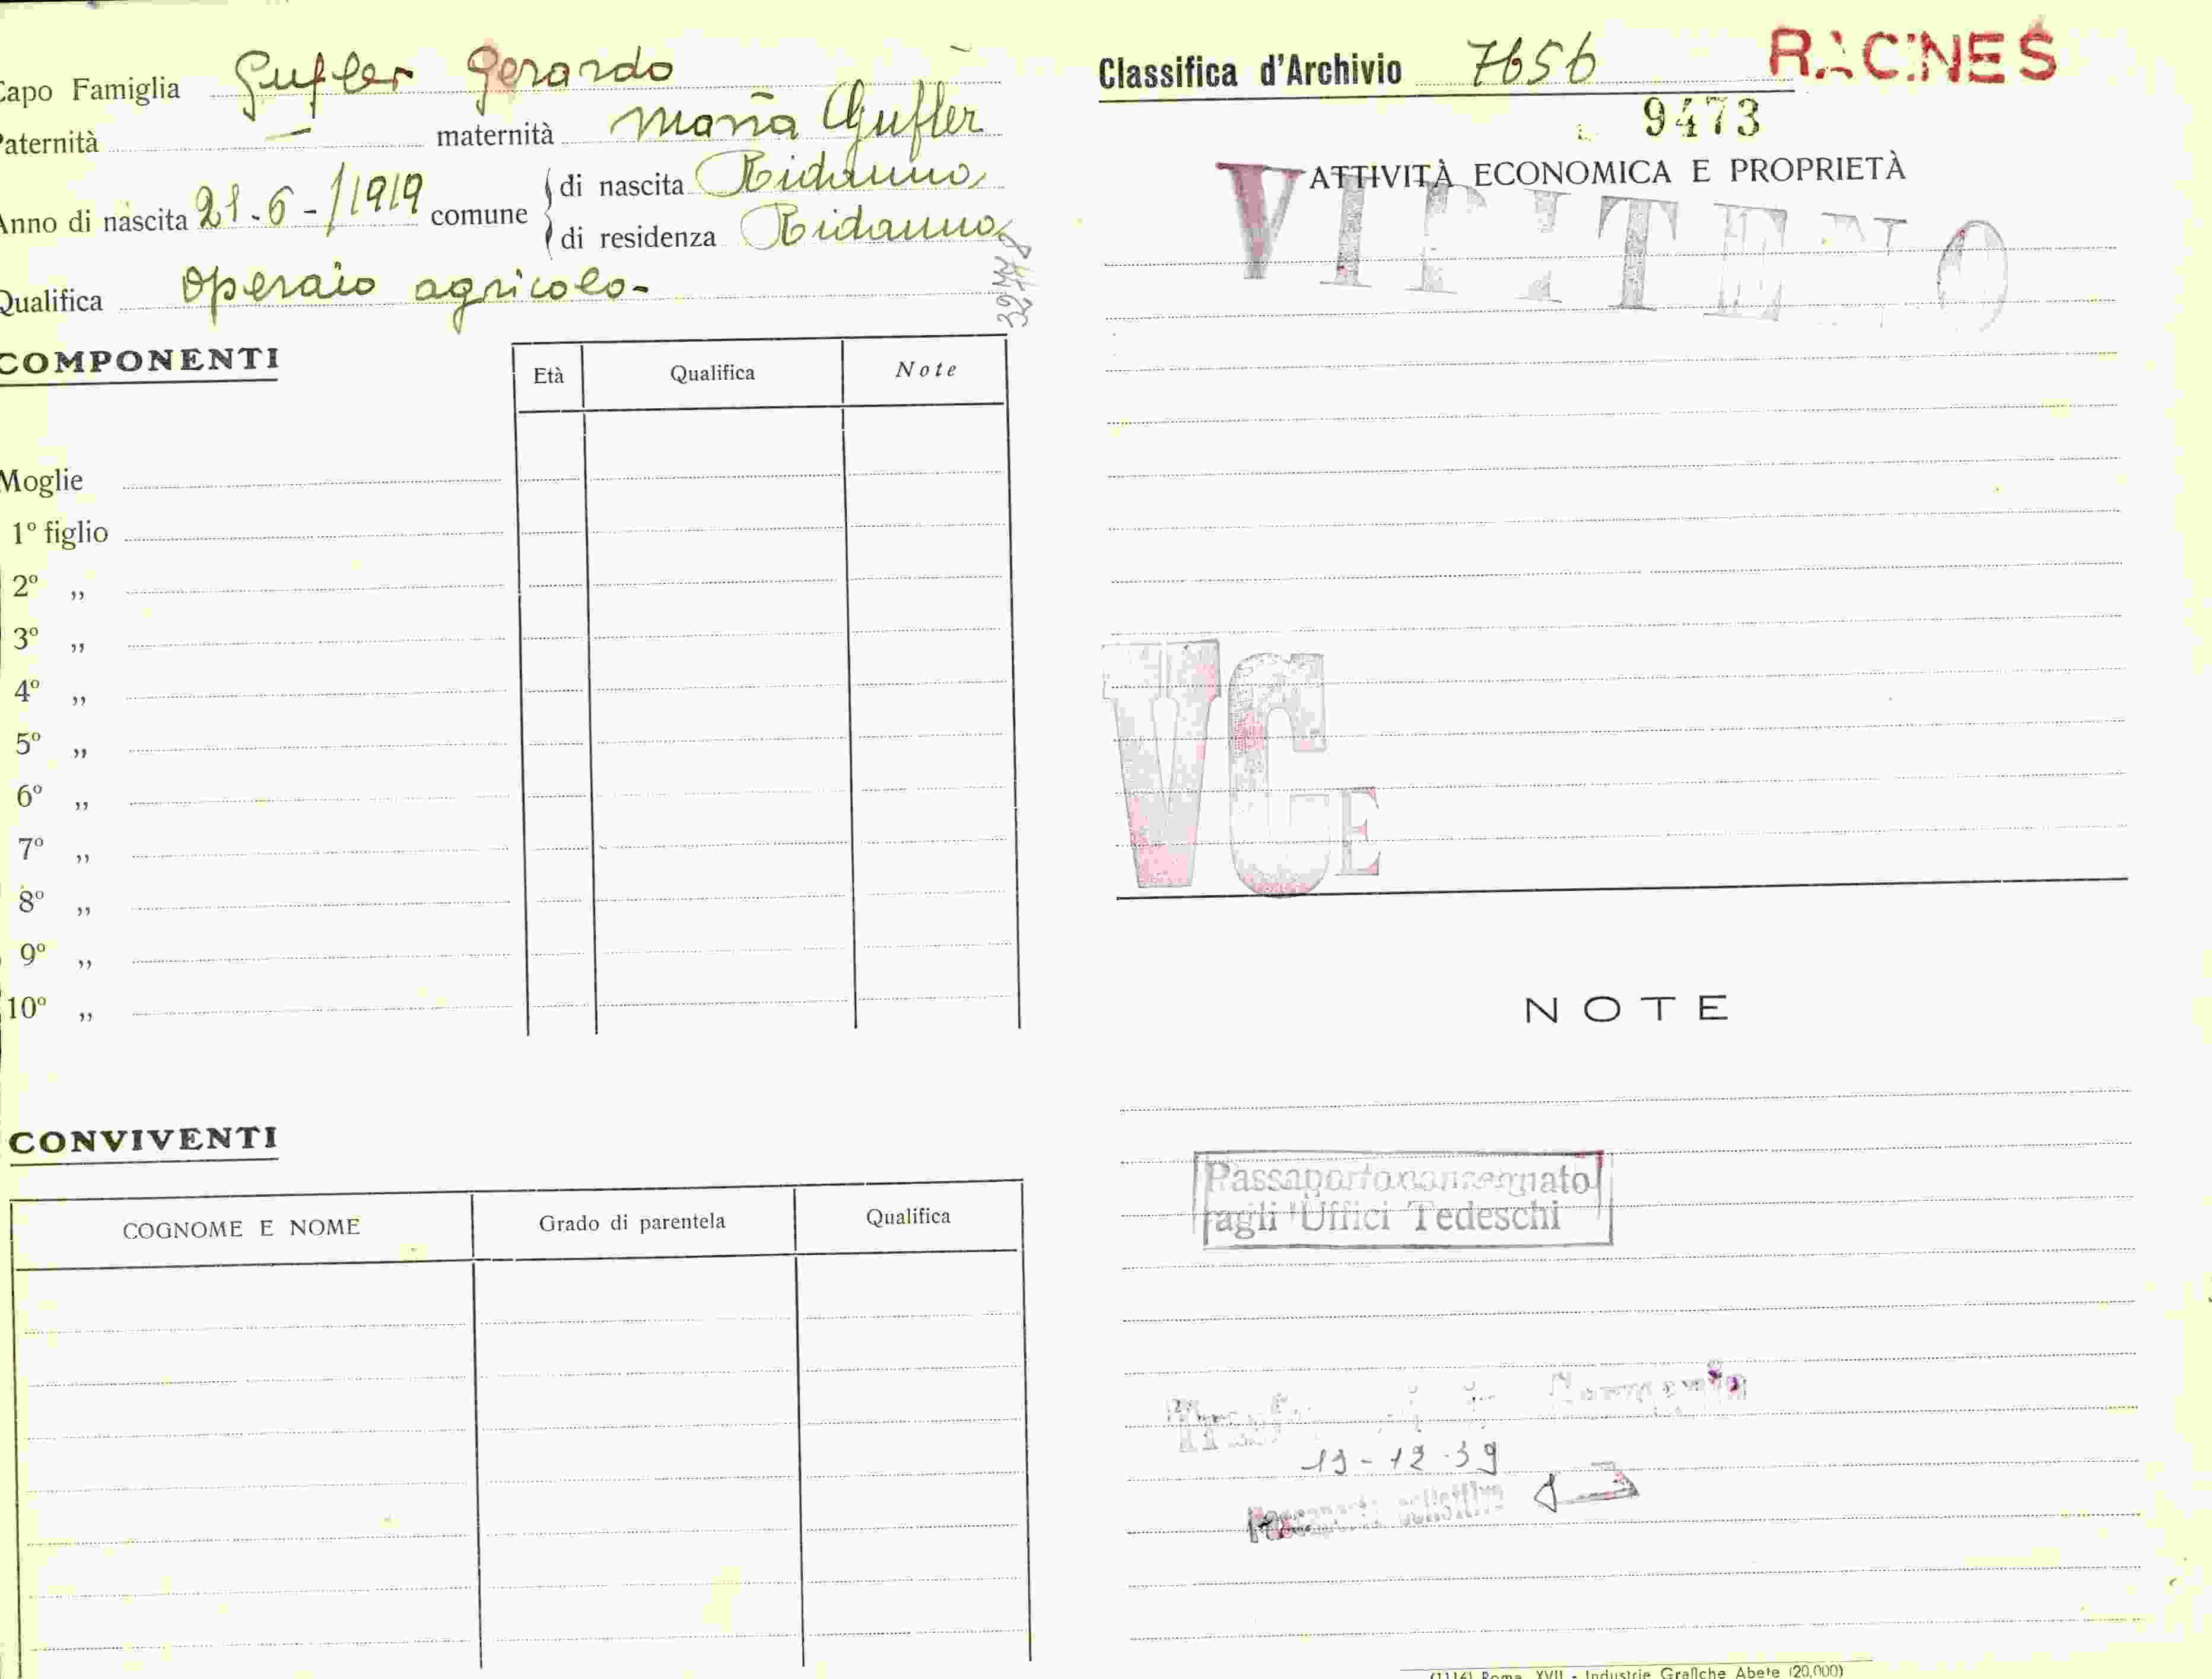 Capo Famiglia Gufler Gerardo
Paternità — maternità Maria Gufler
Anno di nascita 21-6-1919 comune di nascita Ridanno
di residenza Ridanno
Qualifica operaio agricolo-
COMPONENTI
Età Qualifica Note
Moglie
1º figlio
2º „
3º „
4º „
5º „
6º „
7º „
8º „
9º „
10º „
CONVIVENTI
COGNOME E NOME Grado di parentela Qualifica
Classifica d'Archivio 7656 RACINES
9473
ATTIVITÀ ECONOMICA E PROPRIETÀ
VIPITENO
VCE
NOTE
Passaporto consegnato
agli Uffici Tedeschi
in Germania
19-12-39
Passaporto collettivo
(1116) Roma, XVII - Industrie Grafiche Abete (20,000)